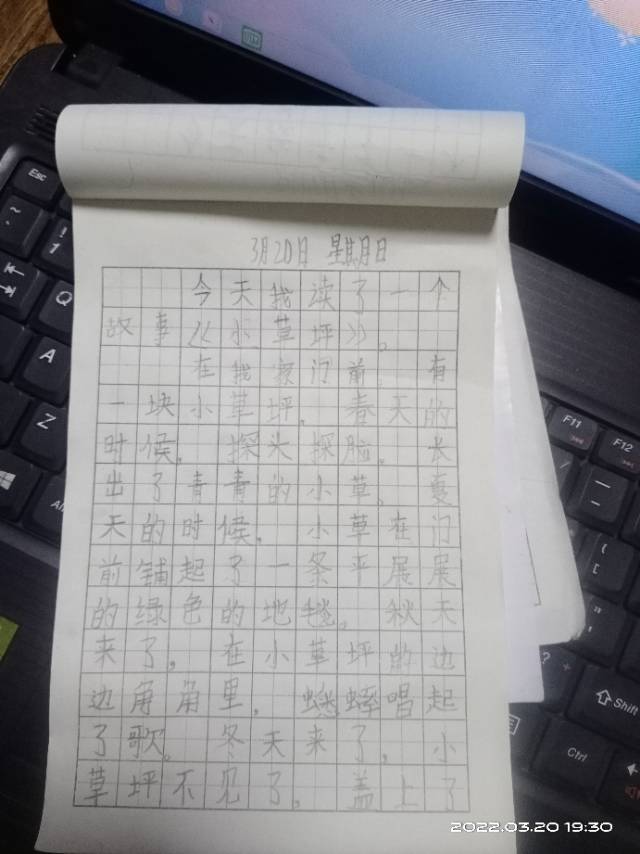 3月20日 星期日
今天我读了一个
故事《小草坪》。
在我家门前,有
一块小草坪,春天的
时候,探头探脑,长
出了青青的小草,夏
天的时候,小草在门
前铺起了一条平展展
的绿色的地毯,秋天
来了,在小草坪的边
边角角里,蟋蟀唱起
了歌,冬天来了,小
草坪不见了,盖上了
Esc
Q
A
Z
Alt
F11
F12
Shift
Ctrl
2022.03.20 19:30